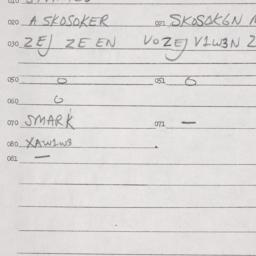 020 A SKOSOKER 021 SKOSOKGN
030 ZEJ ZE EN VOZEJ V1W3N Z
050 O 051 O
060 O
070 SMARK 071 —
080 XAW1W3
081 —